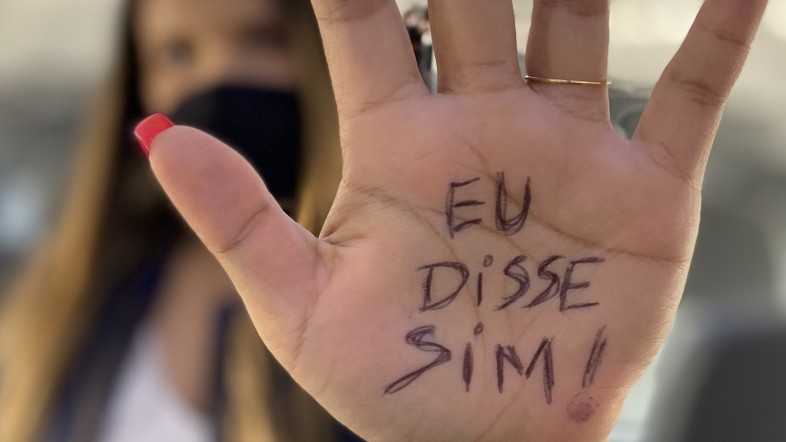 EU
DiSSE
SiM!